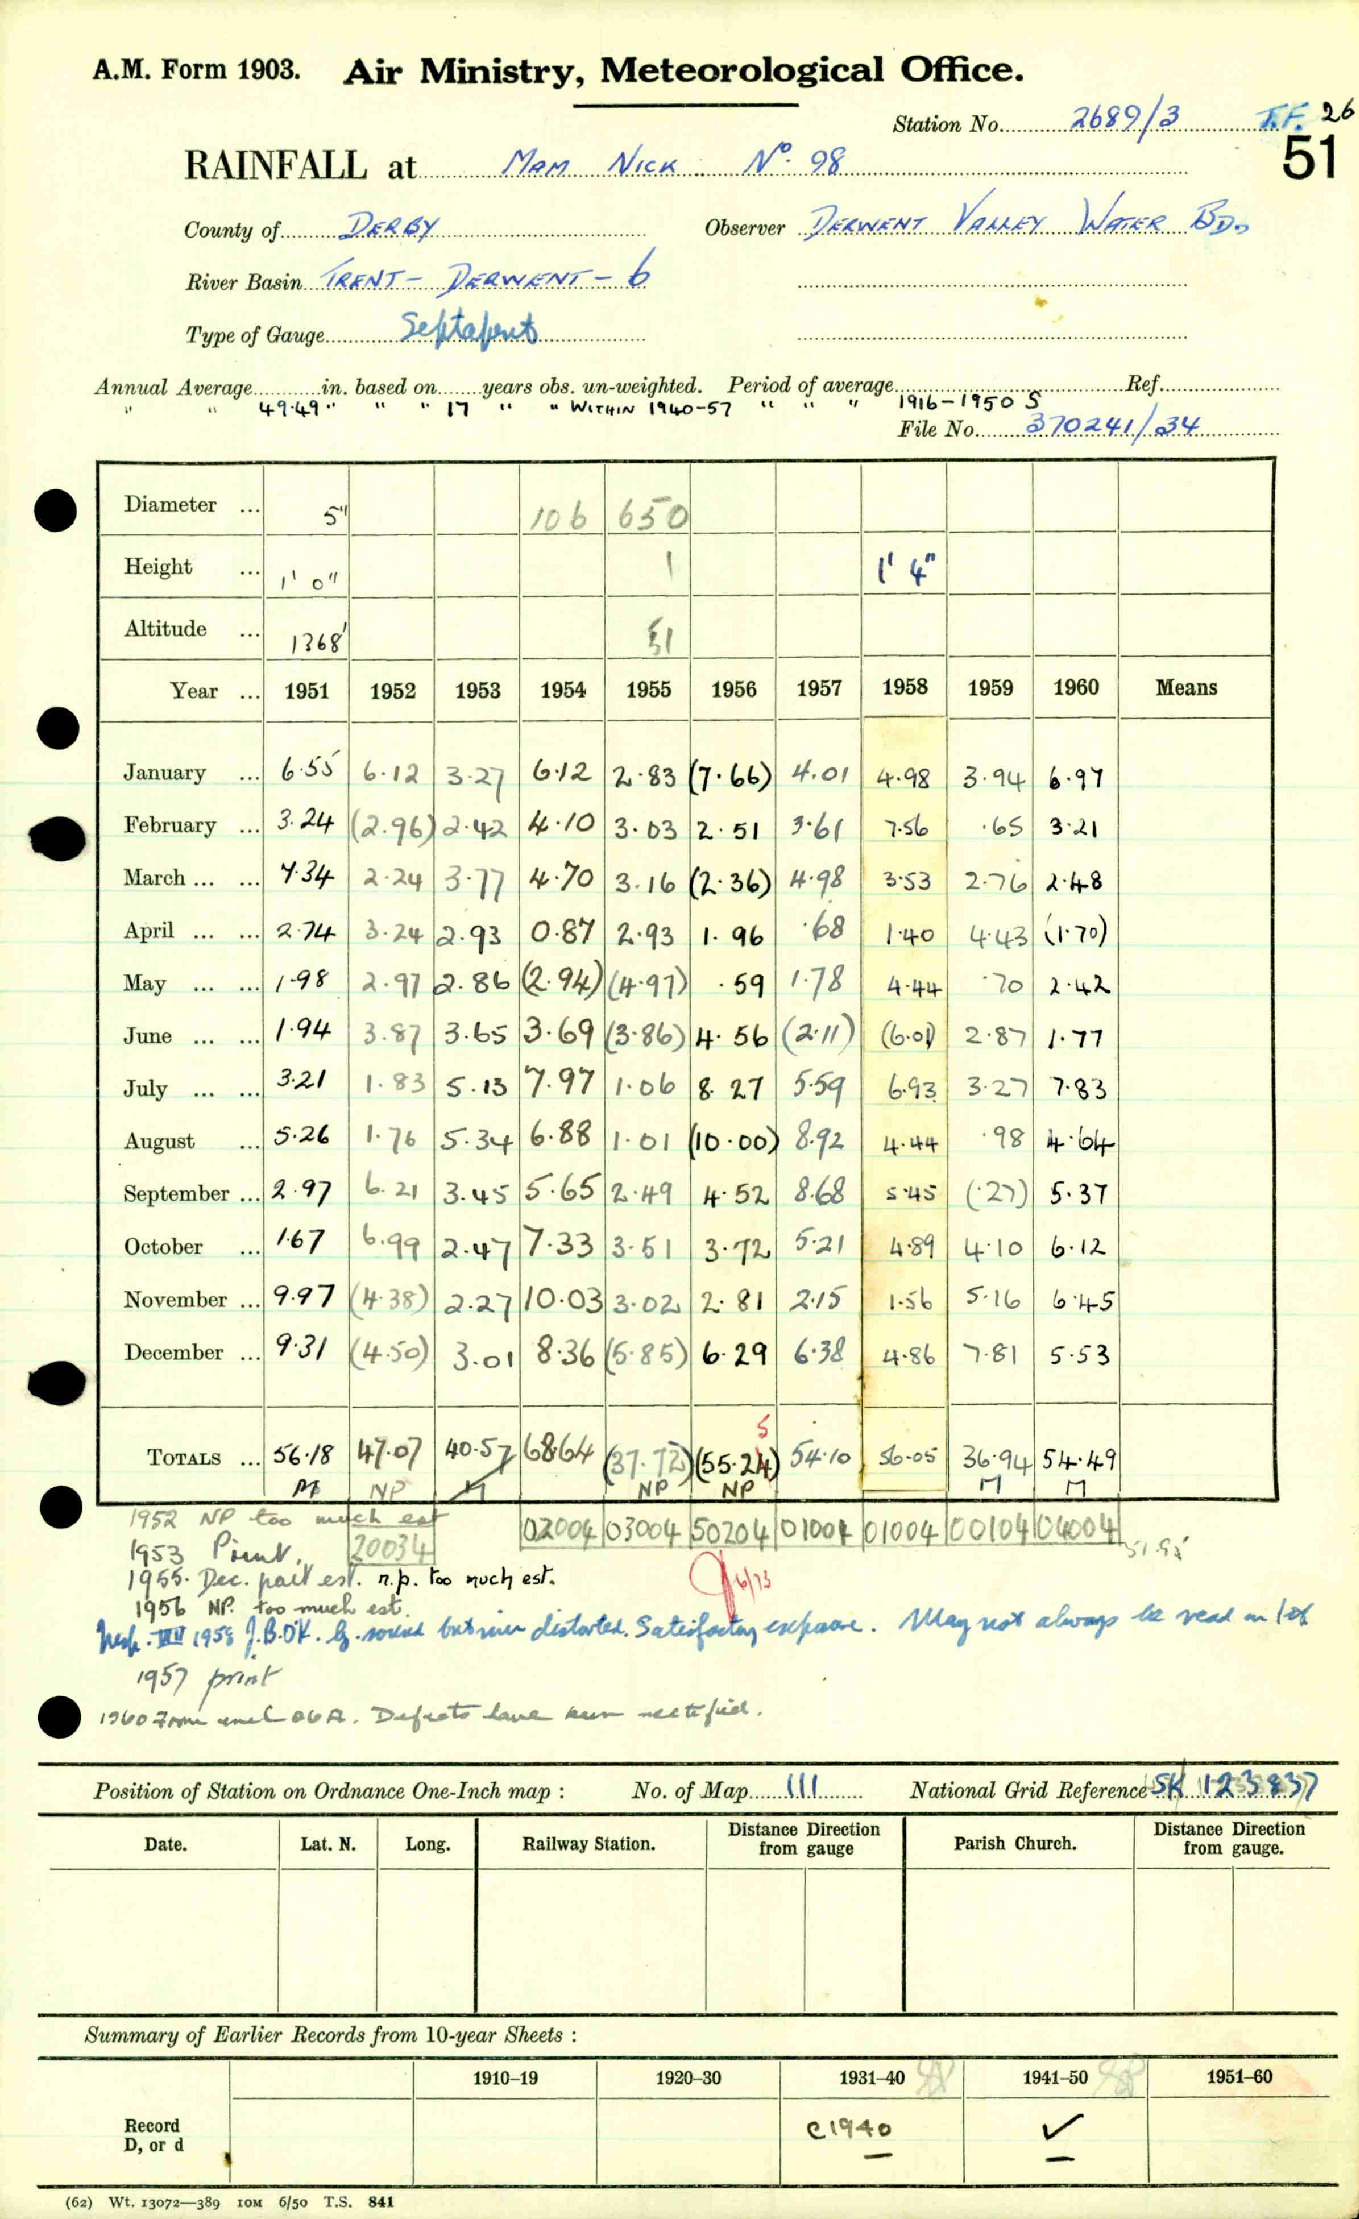 A.M. Form 1903. Air Ministry, Meteorological Office.
Station No. 2689/3 T.F. 26
51
RAINFALL at MAM NICK No. 98
County of DERBY Observer DERWENT VALLEY WATER BD.
River Basin TRENT - DERWENT - 6
Type of Gauge Septapent
Annual Average in. based on years obs. un-weighted. Period of average Ref.
" " 49.49 " " " 17 " " WITHIN 1940-57 " " " 1916-1950 S
File No. 370241/34
Diameter ... 5" 106 650
Height ... 1' 0" 1 1' 4"
Altitude ... 1368' 51
Year ... 1951 1952 1953 1954 1955 1956 1957 1958 1959 1960 Means
January ... 6.55 6.12 3.27 6.12 2.83 (7.66) 4.01 4.98 3.94 6.97
February ... 3.24 (2.96) 2.42 4.10 3.03 2.51 3.61 7.56 .65 3.21
March ... ... 7.34 2.24 3.77 4.70 3.16 (2.36) 4.98 3.53 2.76 2.48
April ... ... 2.74 3.24 2.93 0.87 2.93 1.96 .68 1.40 4.43 (1.70)
May ... ... 1.98 2.97 2.86 (2.94) (4.97) .59 1.78 4.44 .70 2.42
June ... ... 1.94 3.87 3.65 3.69 (3.86) 4.56 (2.11) (6.01) 2.87 1.77
July ... ... 3.21 1.83 5.13 7.97 1.06 8.27 5.59 6.93 3.27 7.83
August ... 5.26 1.76 5.34 6.88 1.01 (10.00) 8.92 4.44 .98 4.64
September ... 2.97 6.21 3.45 5.65 2.49 4.52 8.68 5.45 (.27) 5.37
October ... 1.67 6.99 2.47 7.33 3.51 3.72 5.21 4.89 4.10 6.12
November ... 9.97 (4.38) 2.27 10.03 3.02 2.81 2.15 1.56 5.16 6.45
December ... 9.31 (4.50) 3.01 8.36 (5.85) 6.29 6.38 4.86 7.81 5.53
5
TOTALS ... 56.18 47.07 40.57 68.64 (37.72) (55.24) 54.10 56.05 36.94 54.49
M NP M NP NP M M
1952 NP too much est 02004 03004 50204 01004 01004 00104 04004
1953 Print. 20034
1955. Dec. part est. n.p. too much est. 6/73
1956 NP. too much est.
Insp. VIII 1958 J.B.O'K. G. sound but rim distorted. Satisfactory exposure. May not always be read on 1st
1957 print
1960 Defects have been rectified.
Position of Station on Ordnance One-Inch map : No. of Map 111 National Grid Reference SK 123837
Date. Lat. N. Long. Railway Station. Distance from Direction gauge Parish Church. Distance from Direction gauge.
Summary of Earlier Records from 10-year Sheets :
1910–19 1920–30 1931–40 1941–50 1951–60
Record D, or d C1940 ✓
(62) Wt. 13072—389 10M 6/50 T.S. 841